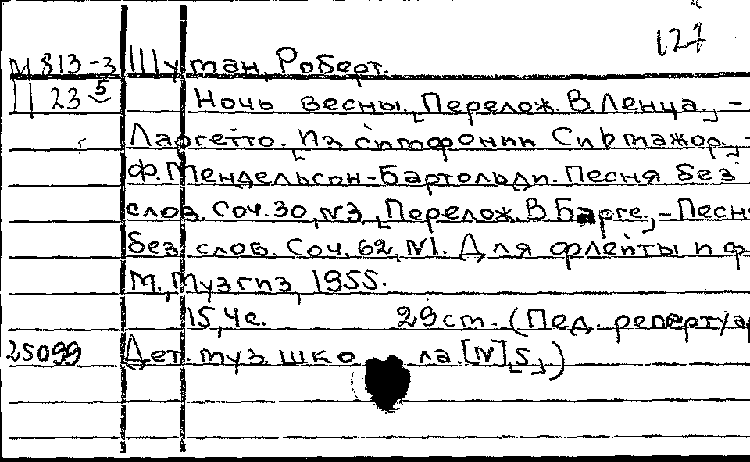 127
М 813-3 Шуман, Роберт.
П 23 5 Ночь весны. [Перелож. В. Ленца.] -
Ларгетто. [Из симфонии Си b мажор.] -
Ф. Мендельсон-Бартольди. Песня без
слов. Соч. 30, №3. [Перелож. В. Барге.] - Песня
без слов. Соч. 62, №1. Для флейты и ф
М., Музгиз, 1955.
15, 4 с. 29 см. (Пед. репертуар
25099 Дет. муз. шко ла [№], 5.)